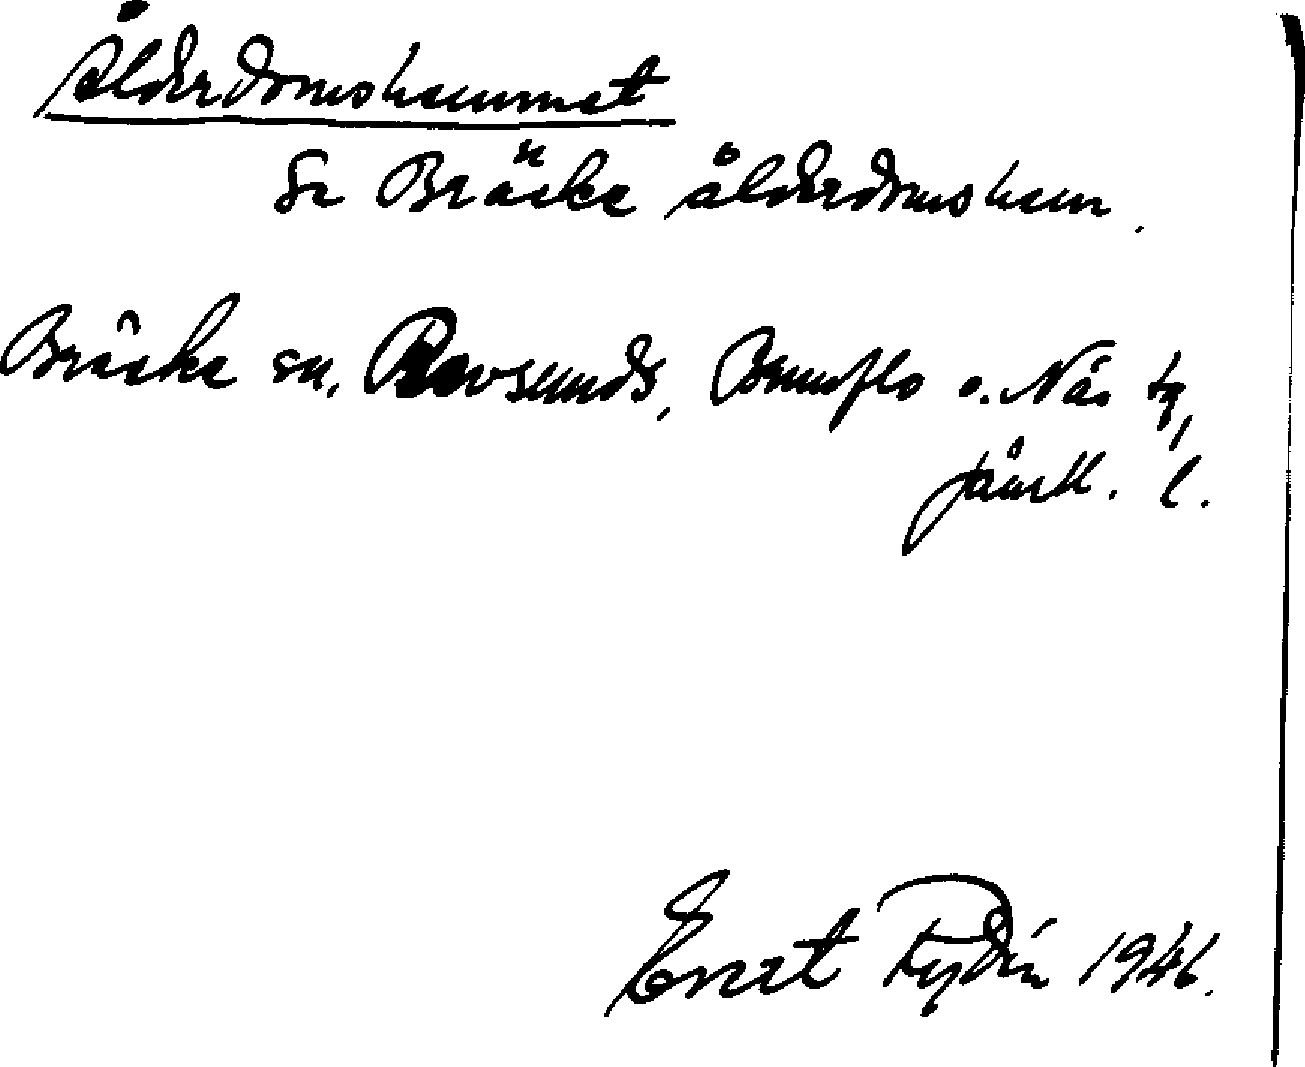 Ålderdomshemmet
Se Bräcke ålderdomshem.
Bräcke sn, Revsunds, Brunflo o. Näs tg,
Jämtl. l.
1946.